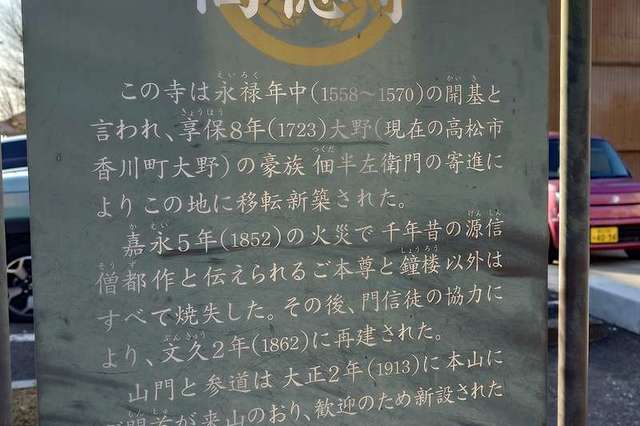 この寺は永禄年中(1558〜1570)の開基と
言われ、享保8年(1723)大野(現在の高松市
香川町大野)の豪族 佃半左衛門の寄進に
よりこの地に移転新築された。
嘉永5年(1852)の火災で千年昔の源信
僧都作と伝えられるご本尊と鐘楼以外は
すべて焼失した。その後、門信徒の協力に
より、文久2年(1862)に再建された。
山門と参道は大正2年(1913)に本山に
が来山のおり、歓迎のため新設された